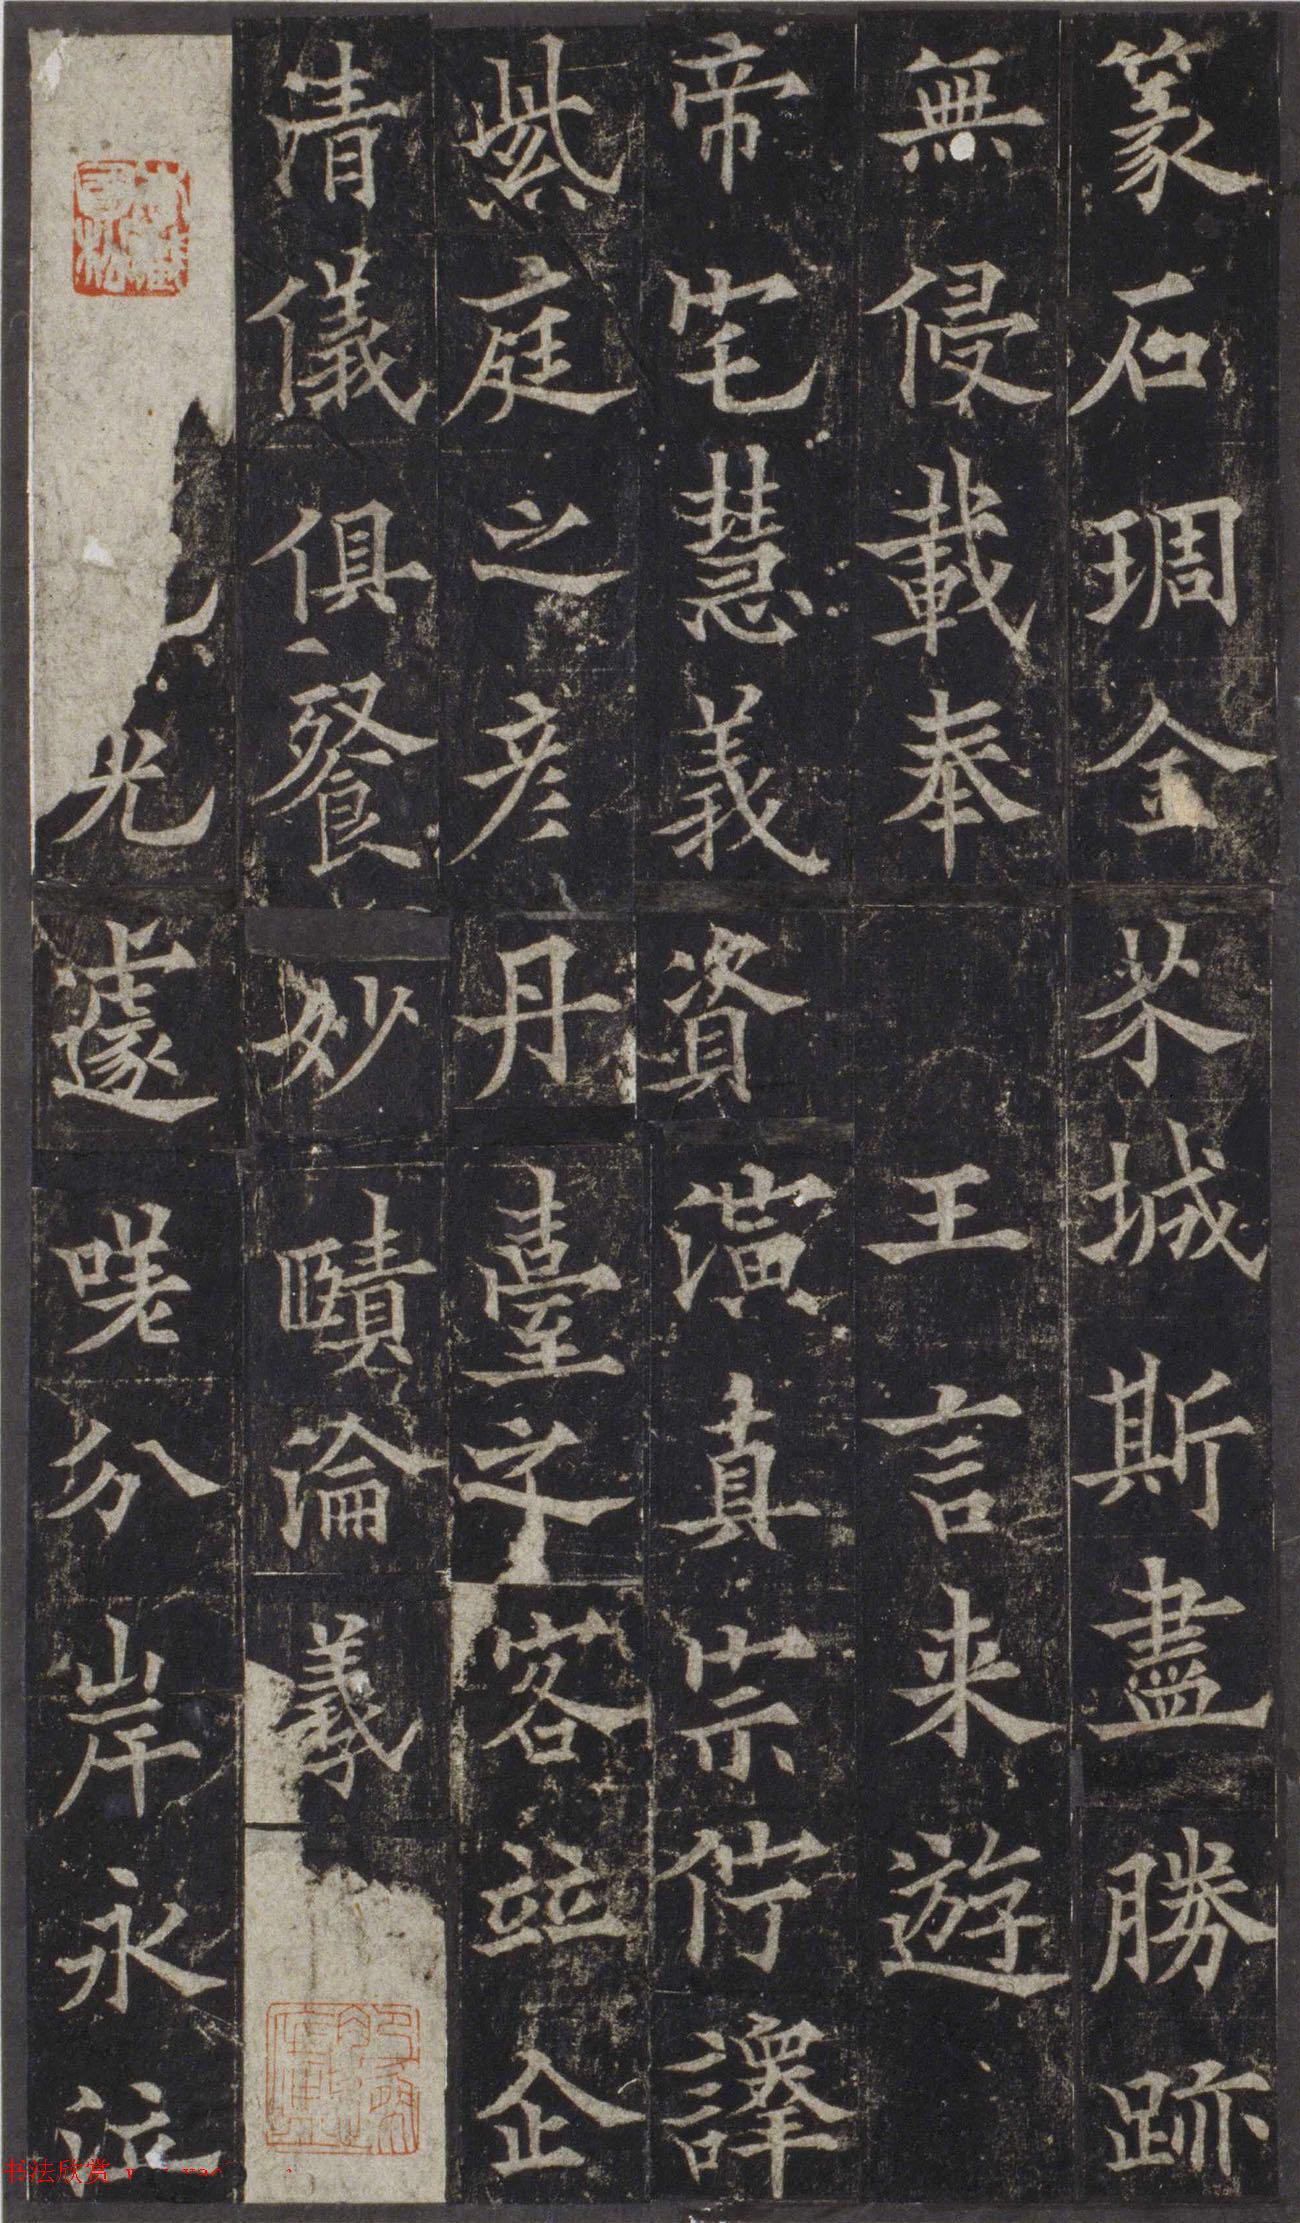 篆石琱金芥城斯盡勝跡
無侵載奉王言来遊
帝宅慧義資演真宗佇譯
紫庭之彦丹臺之客並企
清儀俱餐妙賾淪義
光遽嗟分岸永泣
书法欣赏